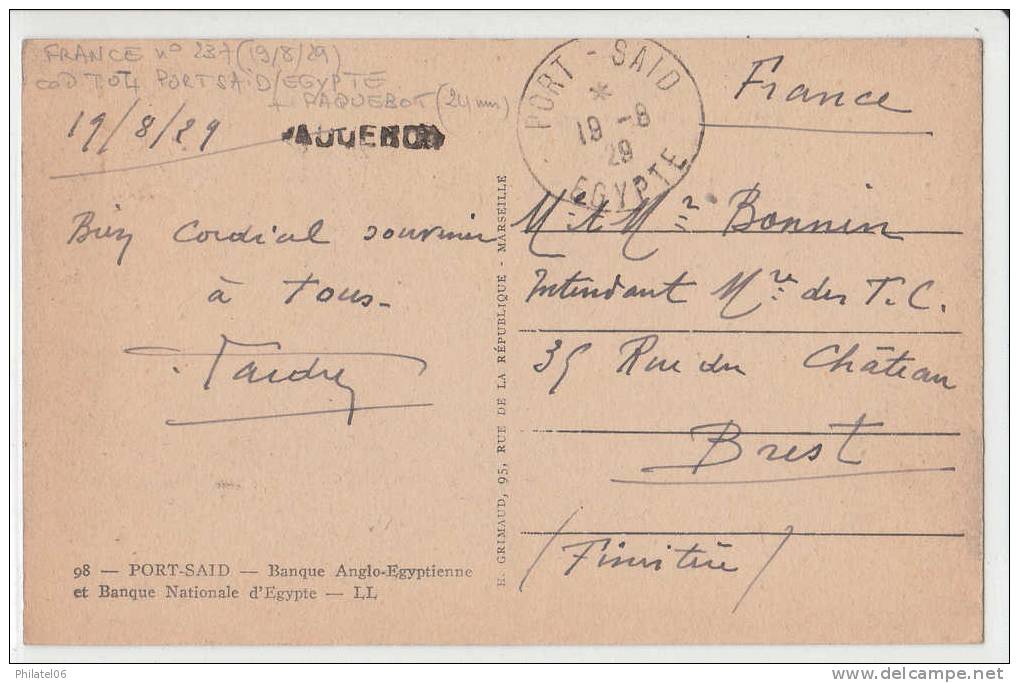 FRANCE n° 237 (19/8/29)
CàD T.04 PORT SAID/EGYPTE
+ PAQUEBOT (24 mm)
19/8/29
PAQUEBOT
PORT-SAID
*
19-8
29
EGYPTE
France
Bien Cordial souvenir
à tous-
M. & Mme Bonnin
Intendant Mre des T.C.
35 Rue du Château
Brest
(Finistère)
H. GRIMAUD, 95, RUE DE LA RÉPUBLIQUE - MARSEILLE
98 — PORT-SAID — Banque Anglo-Egyptienne
et Banque Nationale d'Egypte — LL
Philatel06
www.delcampe.net